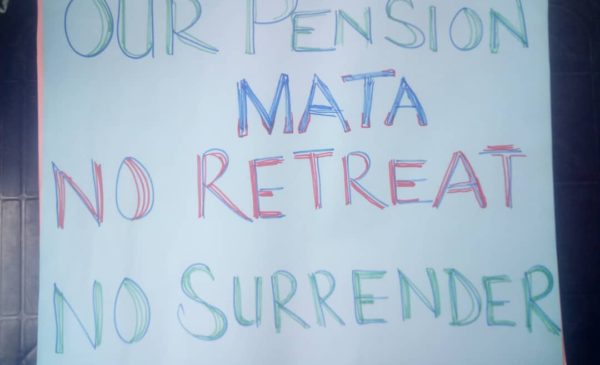 OUR PENSION
MATA
NO RETREAT
NO SURRENDER